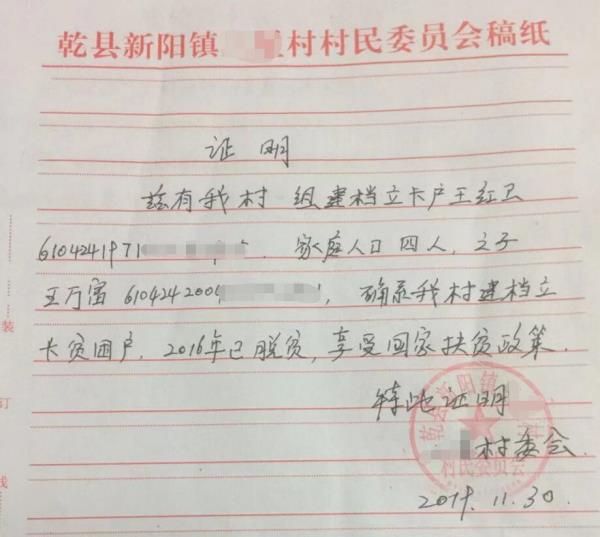 乾县新阳镇 村村民委员会稿纸
证明
兹有我村 组建档立卡户王红卫
610424197 . 家庭人口四人,之子
王万富 610424200 , 确系我村建档立
卡贫困户. 2016年已脱贫, 享受国家扶贫政策.
特此证明
村委会
2019.11.30.
乾县新阳镇
村民委员会
装
订
线